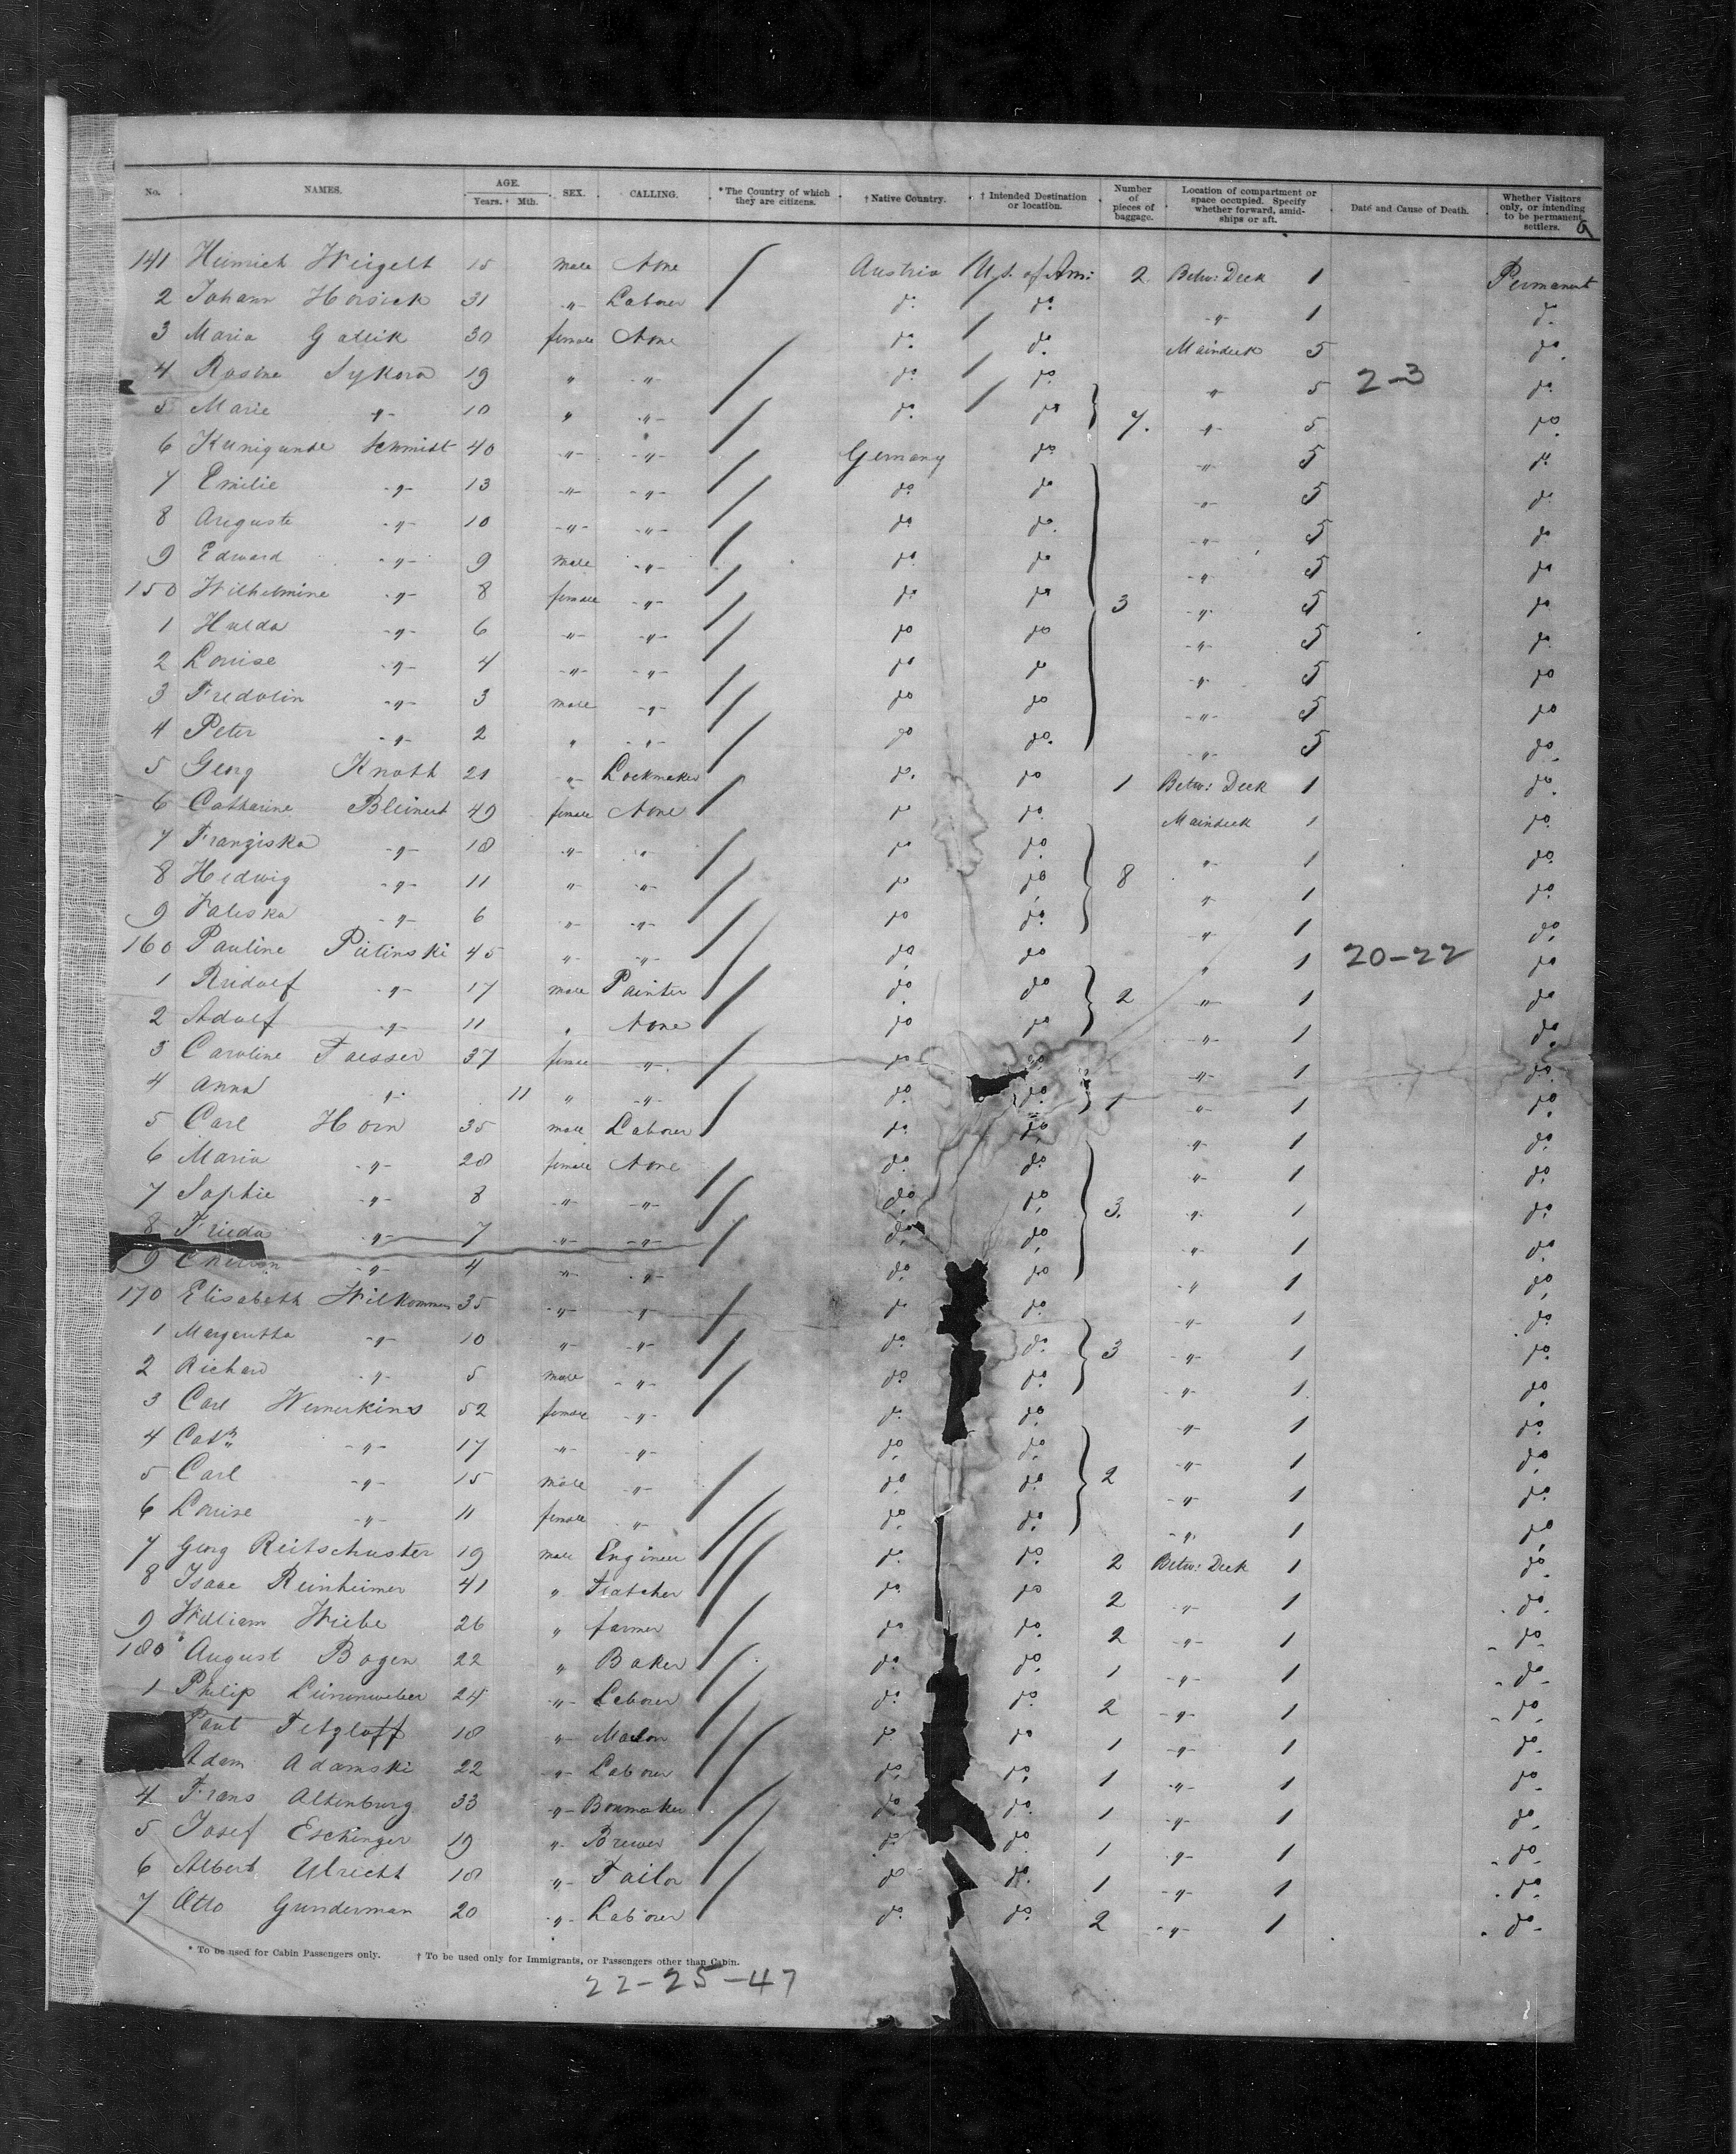 No. NAMES. AGE. Years. Mth. SEX. CALLING. * The Country of which they are citizens. † Native Country. † Intended Destination or location. Number of pieces of baggage. Location of compartment or space occupied. Specify whether forward, amidships or aft. Date and Cause of Death. Whether Visitors only, or intending to be permanent settlers.
141 Heinrich Weigelt 15 male None Austria U.S. of Am: 2. Betw: Deck 1 Permanent
2 Johann Horsick 31 -"- Laborer do. do. -"- 1 do.
3 Maria Gallik 30 female None do. do. Maindeck 5 do.
4 Rosine Sykora 19 " -"- do. do. -"- 5 2-3 do.
5 Marie -"- 10 " -"- do. do 7. -"- 5 do.
6 Kunigunde Schmidt 40 -"- -"- Germany do -"- 5 do.
7 Emilie -"- 13 -"- -"- do. do -"- 5 do.
8 Auguste -"- 10 -"- -"- do do. -"- 5 do
9 Edward -"- 9 male -"- do. do -"- 5 do
150 Wilhelmine -"- 8 female -"- do do 3 -"- 5 do
1 Hulda -"- 6 -"- -"- do do -"- 5 do.
2 Louise -"- 4 -"- -"- do do -"- 5 do
3 Fredolin -"- 3 male -"- do do -"- 5 do
4 Peter -"- 2 " -"- do do. -"- 5 do.
5 Georg Knoth 21 -"- Lockmaker do. do 1 Betw: Deck 1 do.
6 Catharine Bleinert 49 female None do do. Maindeck 1 do.
7 Franziska -"- 18 -"- -"- do do. -"- 1 do.
8 Hedwig -"- 11 -"- -"- do do 8 -"- 1 do.
9 Valeska -"- 6 -"- -"- do do. -"- 1 do.
160 Pauline Pietinski 45 -"- -"- do. do " 1 20-22 do
1 Rudolf -"- 17 male Painter do. do 2 -"- 1 do
2 Adolf -"- 11 " None do do -"- 1 do.
3 Caroline Taesser 37 female -"- do do. -"- 1 do.
4 Anna -"- 11 " -"- do. do. 1 -"- 1 do
5 Carl Horn 35 male Laborer do. do -"- 1 do.
6 Maria -"- 28 female None do. do. -"- 1 do.
7 Sophie -"- 8 -"- -"- do. do 3. -"- 1 do.
8 Frieda -"- 7 -"- -"- do. do. -"- 1 do.
9 -"- 4 -"- -"- do. do -"- 1 do.
170 Elisabeth Wilkommen 35 -"- -"- do do. -"- 1 do.
1 Margaretha -"- 10 -"- -"- do. do. 3 -"- 1 do.
2 Richard -"- 5 male -"- do do. -"- 1 do.
3 Carl Wernerkins 52 female -"- do. do. -"- 1 do.
4 Cath. -"- 17 -"- -"- do. do. -"- 1 do.
5 Carl -"- 15 male -"- do. do. 2 -"- 1 do.
6 Louise -"- 11 female -"- do. do. -"- 1 do.
7 Georg Reitschuster 19 male Engineer do. do. 2 Betw: Deck 1 do.
8 Isaac Reinheimer 41 " do. do 2 -"- 1 do.
9 William Wiebe 26 " farmer do do. 2 -"- 1 do.
180 August Bogen 22 " Baker do. do. 1 -"- 1 do-
1 Philip 24 -"- Laborer do. do. 2 -"- 1 do-
Paul Tetzloff 18 -"- Mason do do 1 -"- 1 do-
Adam Adamski 22 -"- Laborer do. do. 1 -"- 1 do-
4 Frans Altenburg 33 -"- do. do. 1 -"- 1 do-
5 Josef Eschinger 19 "- Brewer do. do. 1 -"- 1 do-
6 Albert Ulrecht 18 -"- Tailor do do. 1 -"- 1 do-
7 Otto Gunderman 20 -"- Laborer do. do. 2 -"- 1 do-
* To be used for Cabin Passengers only. † To be used only for Immigrants, or Passengers other than Cabin.
22-25-47